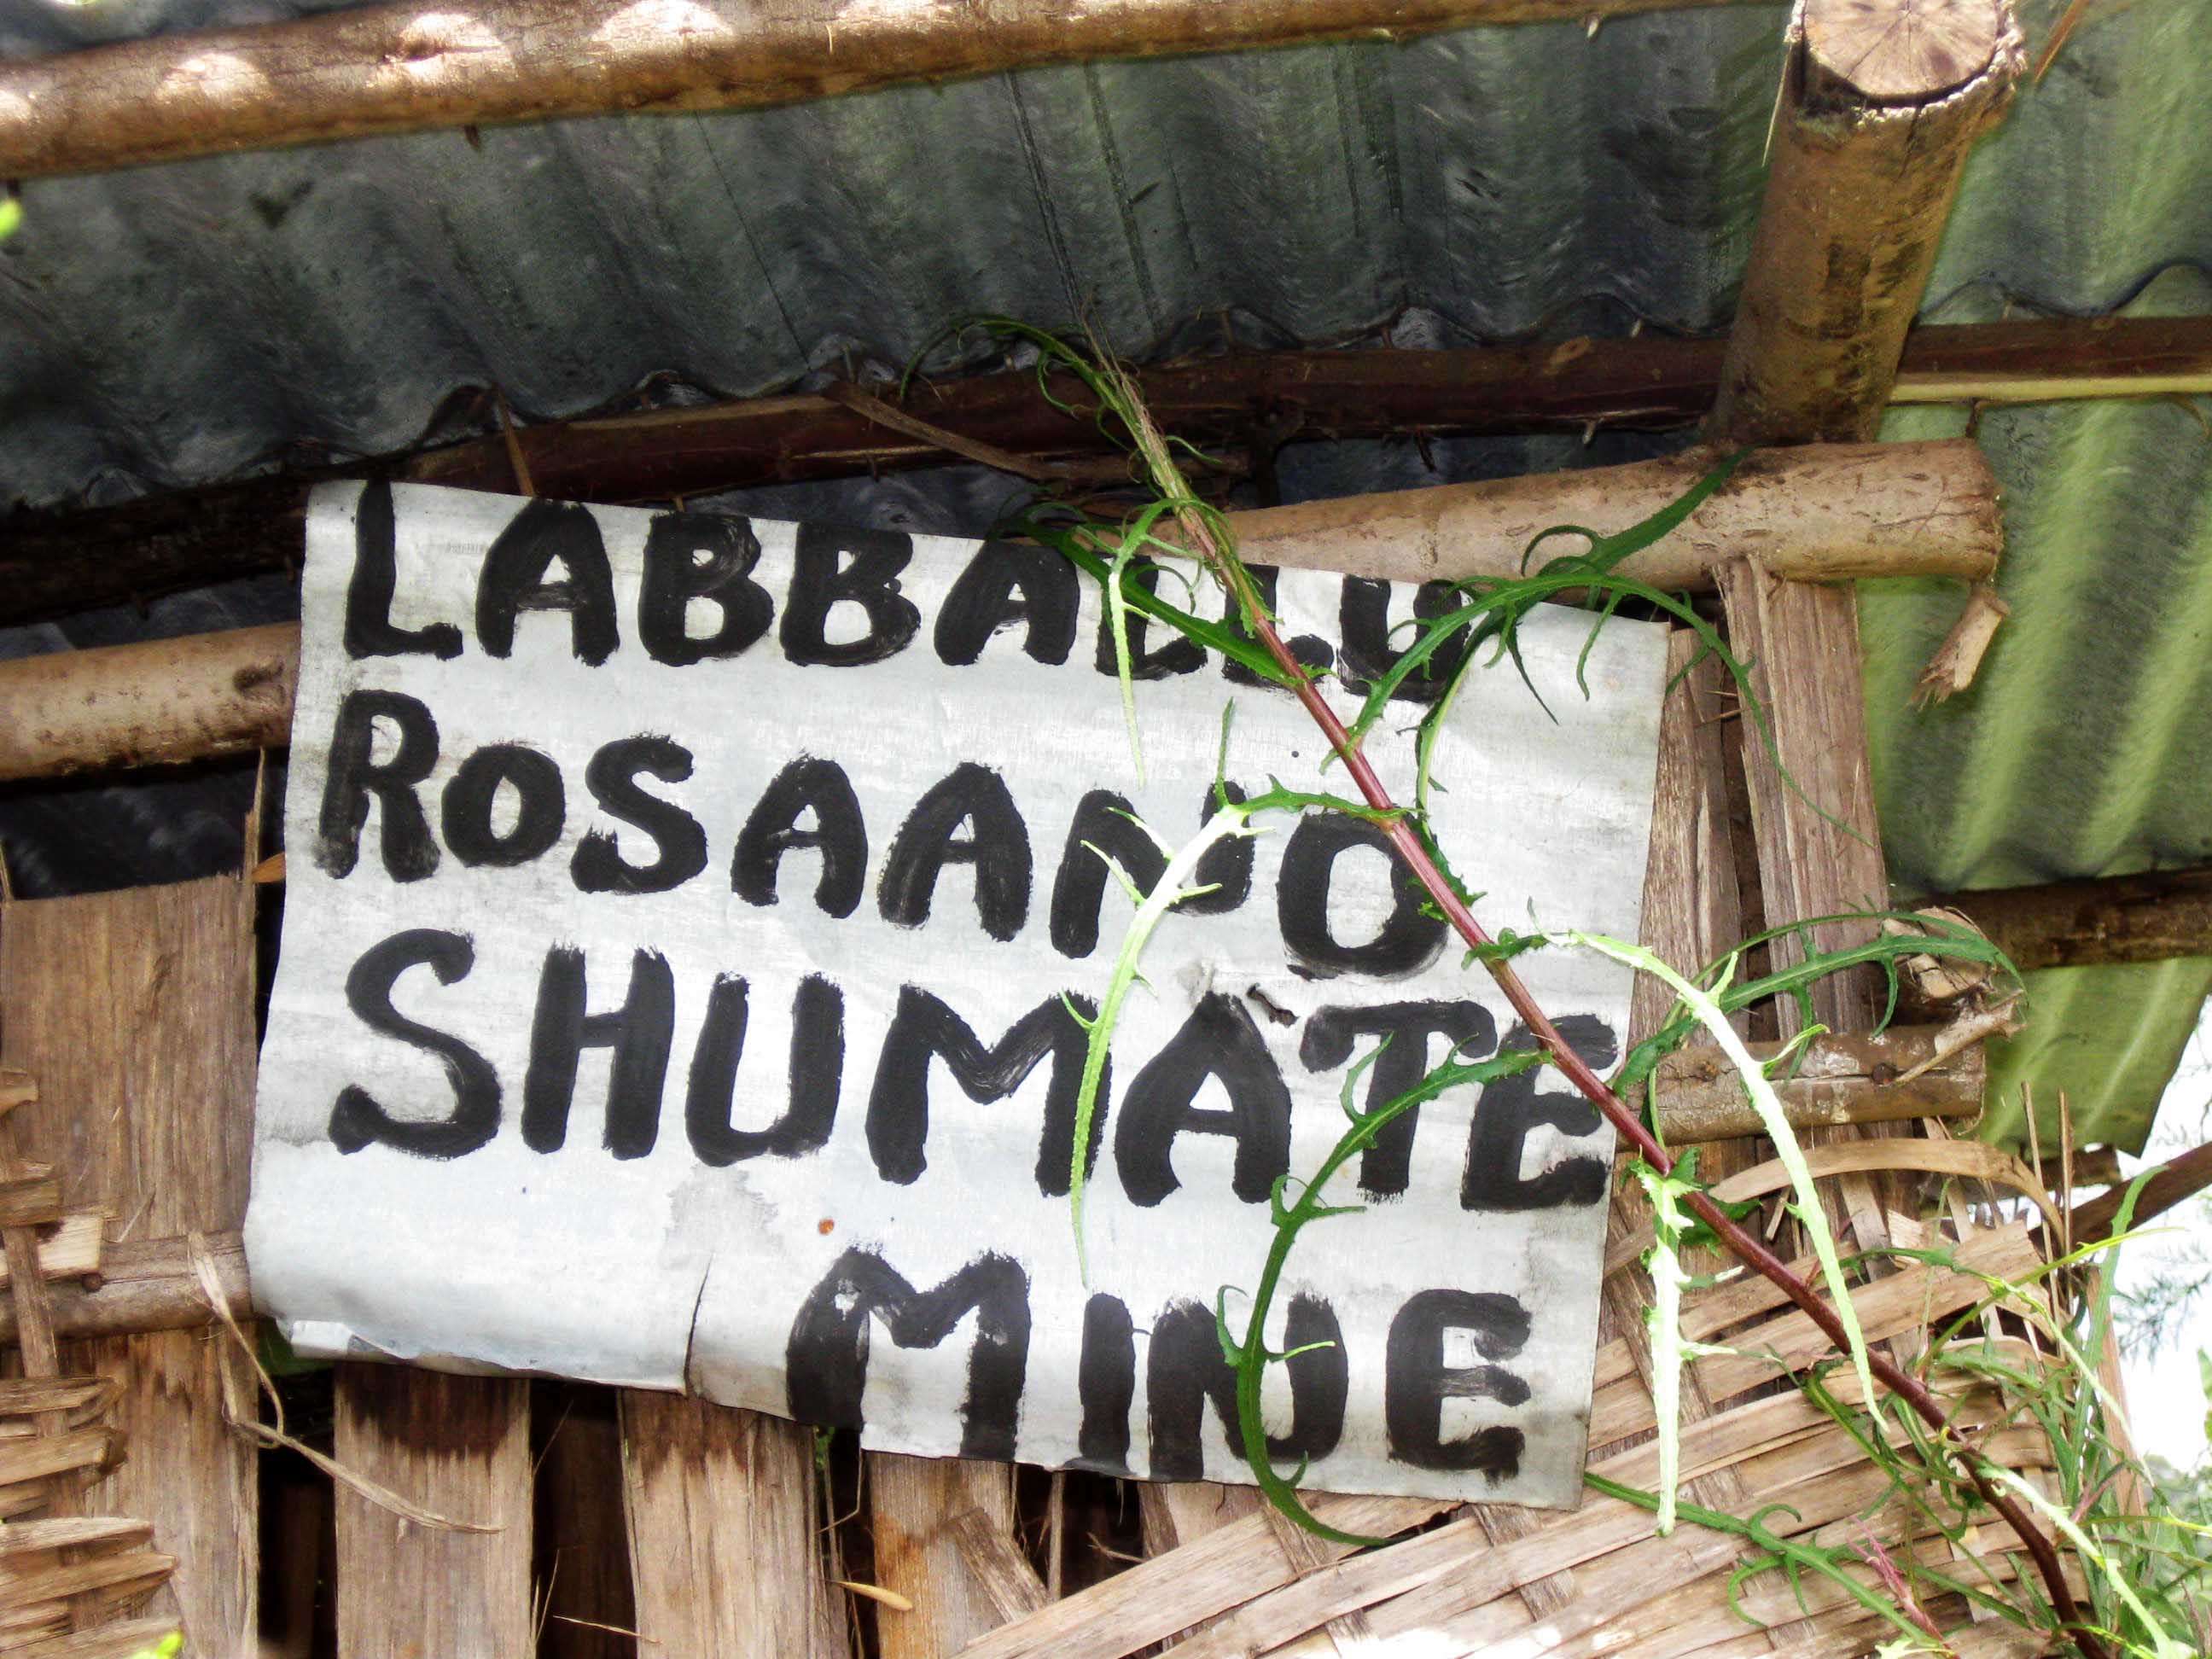 LABBALLU
ROSAANO
SHUMATE
MINE